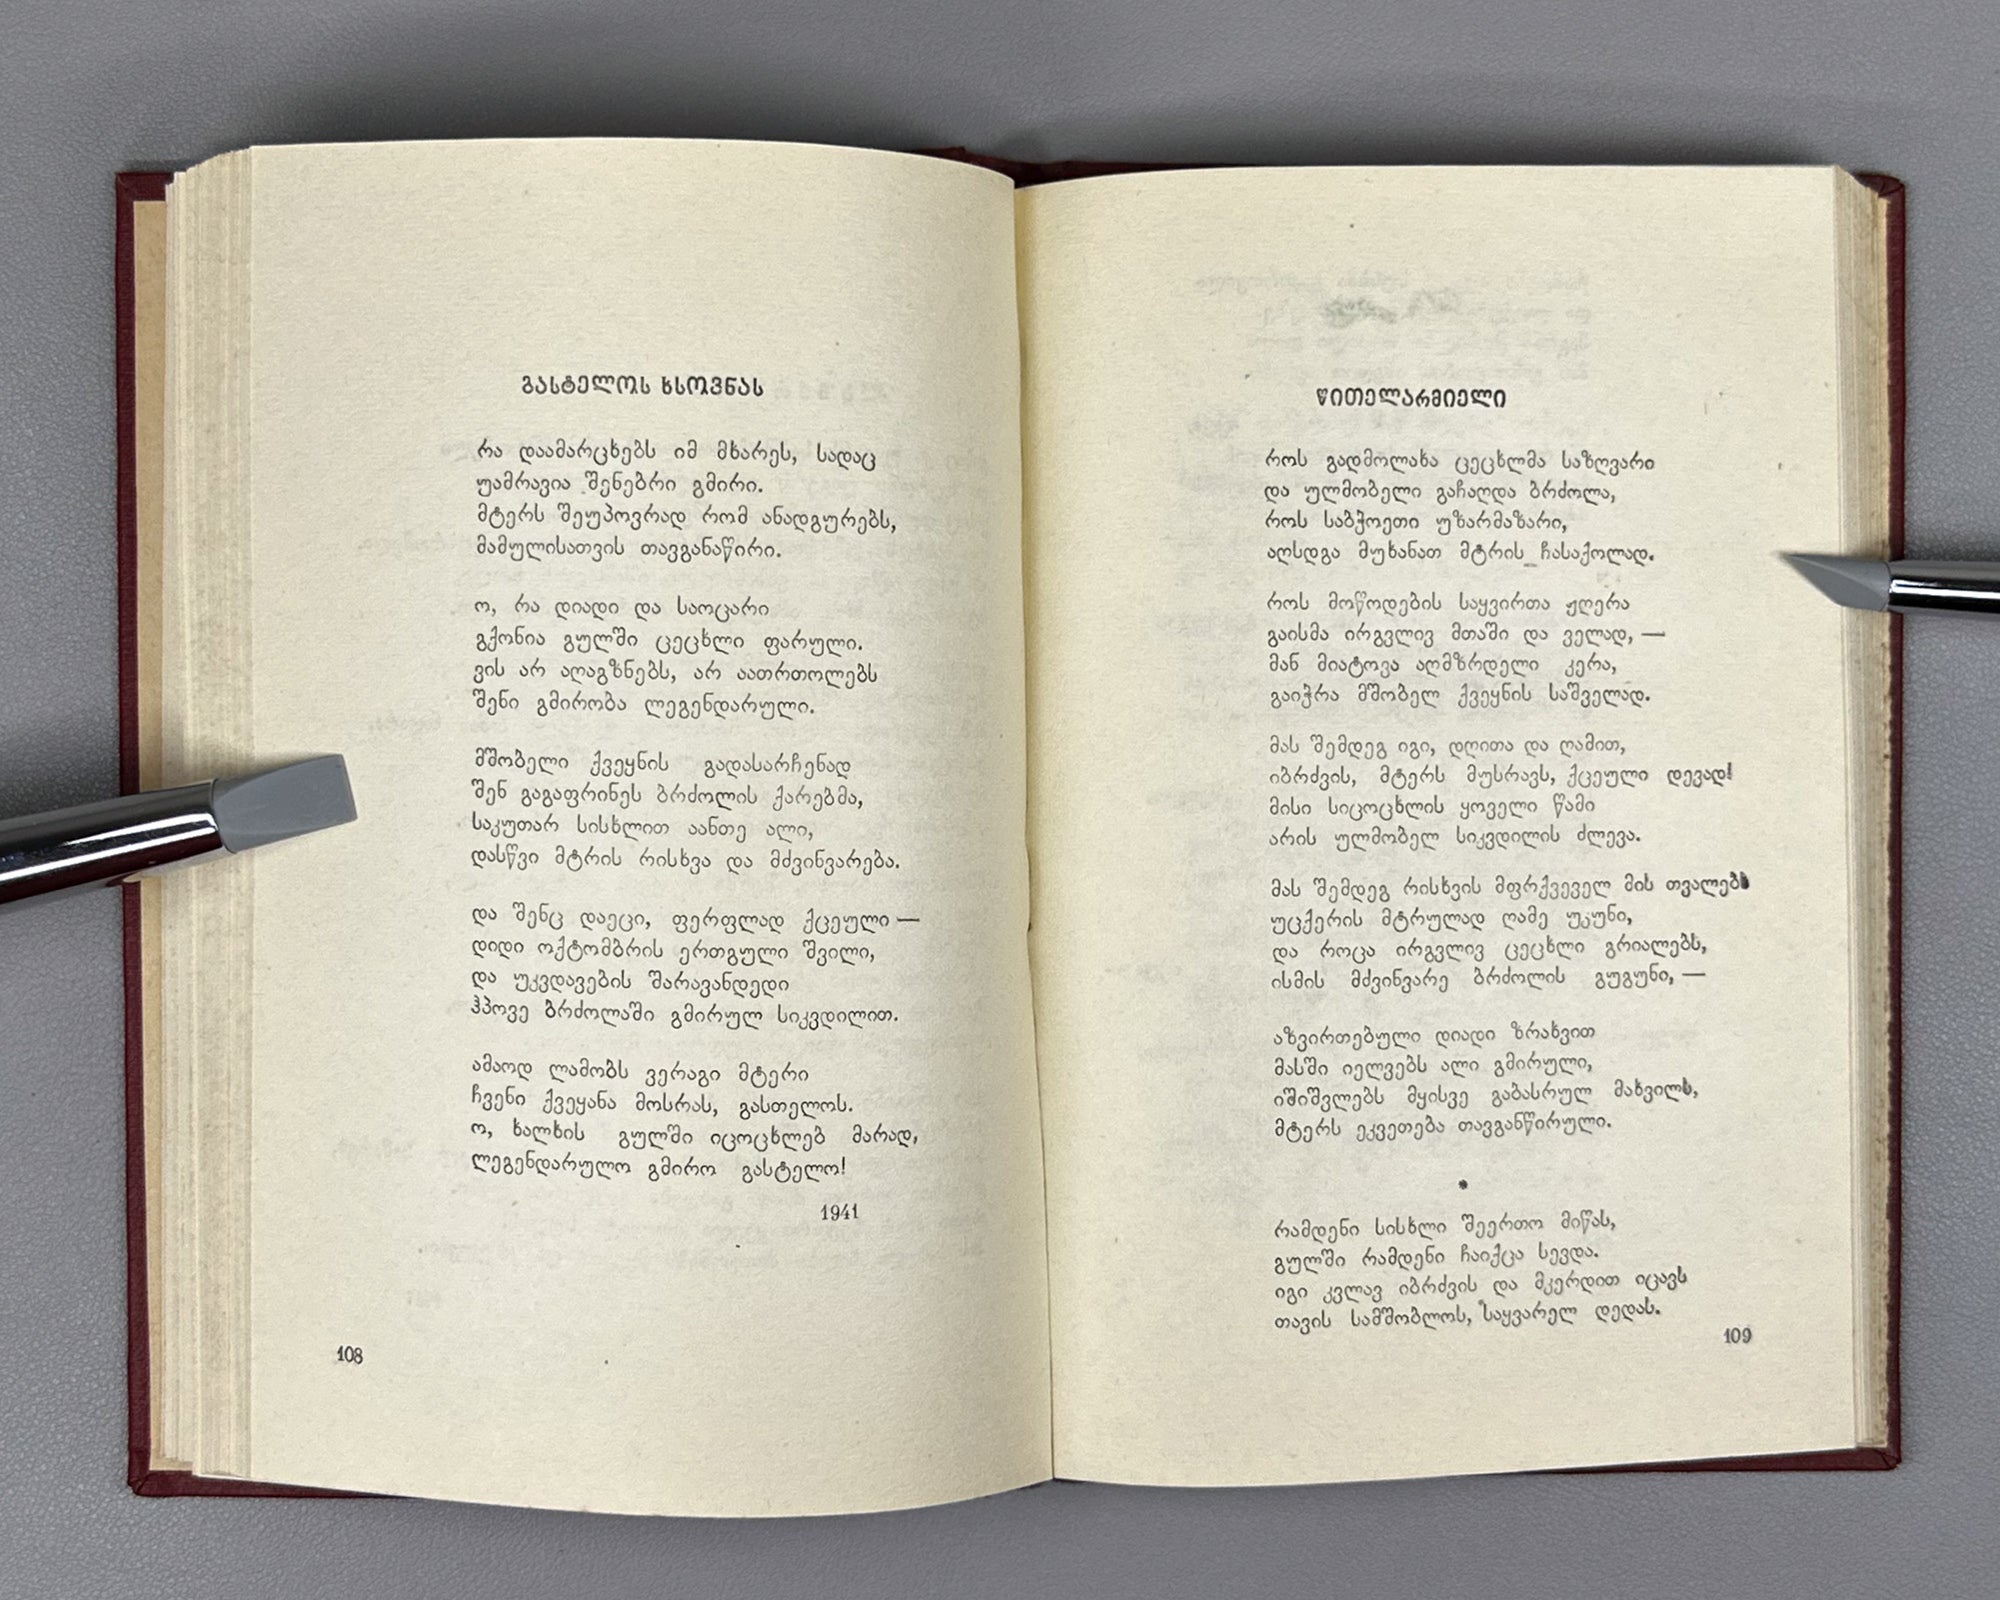 გასტელოს ხსოვნას
რა დაამარცხებს იმ მხარეს, სადაც
უამრავია შენებრი გმირი.
მტერს შეუპოვრად რომ ანადგურებს,
მამულისათვის თავგანაწირი.
ო, რა დიადი და საოცარი
გქონია გულში ცეცხლი ფარული.
ვის არ აღაგზნებს, არ აათრთოლებს
შენი გმირობა ლეგენდარული.
მშობელი ქვეყნის გადასარჩენად
შენ გაგაფრინეს ბრძოლის ქარებმა,
საკუთარ სისხლით აანთე ალი,
დასწვი მტრის რისხვა და მძვინვარება.
და შენც დაეცი, ფერფლად ქცეული —
დიდი ოქტომბრის ერთგული შვილი,
და უკვდავების შარავანდედი
ჰპოვე ბრძოლაში გმირულ სიკვდილით.
ამაოდ ლამობს ვერაგი მტერი
ჩვენი ქვეყანა მოსრას, გასთელოს.
ო, ხალხის გულში იცოცხლებ მარად,
ლეგენდარულო გმირო გასტელო!
1941
108
წითელარმიელი
როს გადმოლახა ცეცხლმა საზღვარი
და ულმობელი გაჩაღდა ბრძოლა,
როს საბჭოეთი უზარმაზარი,
აღსდგა მუხანათ მტრის ჩასაქოლად.
როს მოწოდების საყვირთა ჟღერა
გაისმა ირგვლივ მთაში და ველად, —
მან მიატოვა აღმზრდელი კერა,
გაიჭრა მშობელ ქვეყნის საშველად.
მას შემდეგ იგი, დღითა და ღამით,
იბრძვის, მტერს მუსრავს, ქცეული დევად!
მისი სიცოცხლის ყოველი წამი
არის ულმობელ სიკვდილის ძლევა.
მას შემდეგ რისხვის მფრქვეველ მის თვალებს
უცქერის მტრულად ღამე უკუნი,
და როცა ირგვლივ ცეცხლი გრიალებს,
ისმის მძვინვარე ბრძოლის გუგუნი, —
აზვირთებული დიადი ზრახვით
მასში იელვებს ალი გმირული,
იშიშვლებს მყისვე გაბასრულ მახვილს,
მტერს ეკვეთება თავგანწირული.
*
რამდენი სისხლი შეერთო მიწას,
გულში რამდენი ჩაიქცა სევდა.
იგი კვლავ იბრძვის და მკერდით იცავს
თავის სამშობლოს, საყვარელ დედას.
109